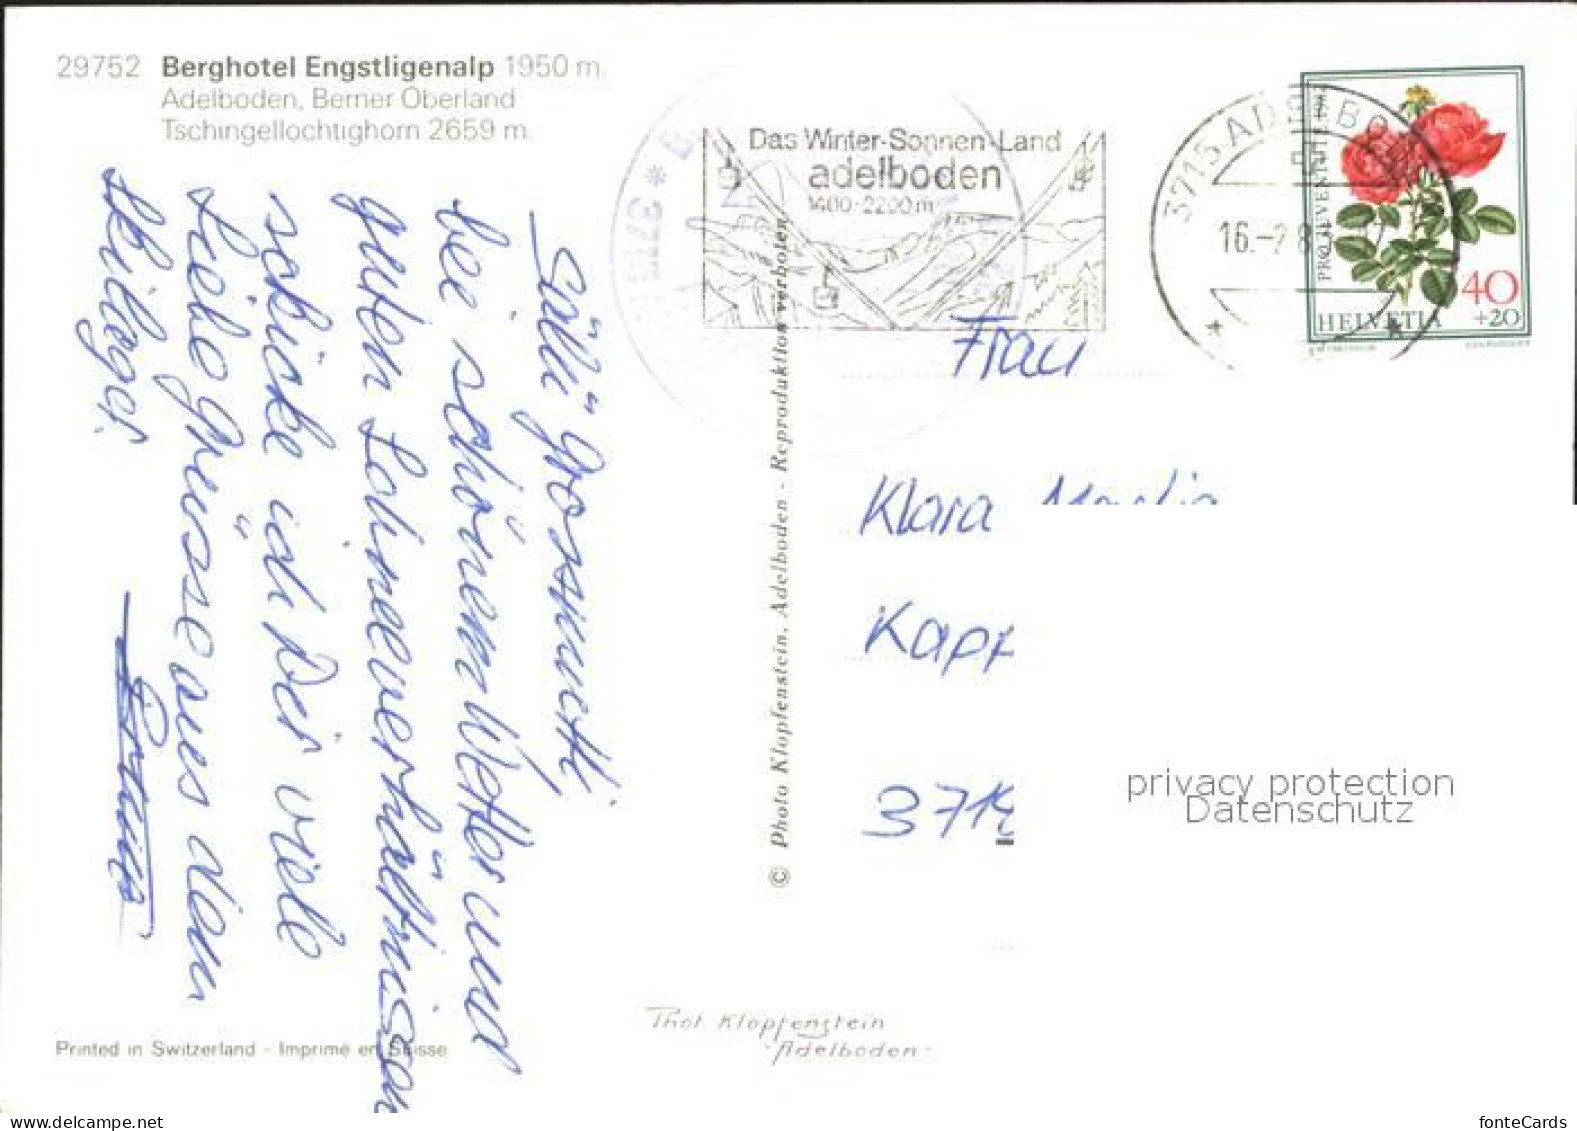 29752 Berghotel Engstligenalp 1950 m.
Adelboden, Berner Oberland
Tschingellochtighorn 2659 m.
Sälü Grossmueti,
bei schönem Wetter und
guten Schneeverhältnissen
schicke ich Dir viele
Liebe Grüsse aus dem
Skilager.
Das Winter-Sonnen-Land
adelboden
1400-2200 m
3715 ADELBODEN
16.-2.8
PRO JUVENTUTE 1982
40
+20
HELVETIA
© Photo Klopfenstein, Adelboden - Reproduktion verboten
Frau
Klara
Kapf
3714
privacy protection
Datenschutz
Phot. Klopfenstein
-Adelboden-
Printed in Switzerland - Imprimé en Suisse
www.delcampe.net
fonteCards